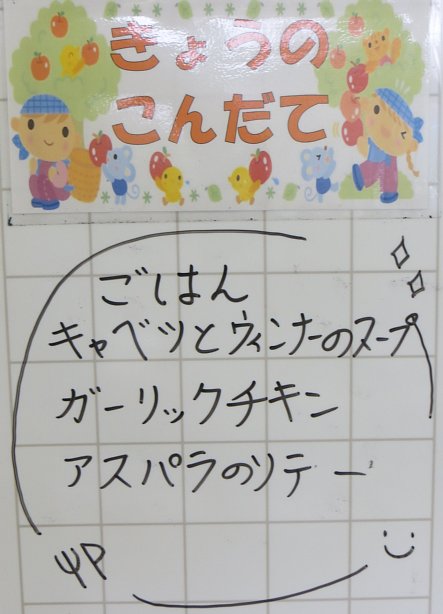 きょうの
こんだて
ごはん
キャベツとウィンナーのスープ
ガーリックチキン
アスパラのソテー